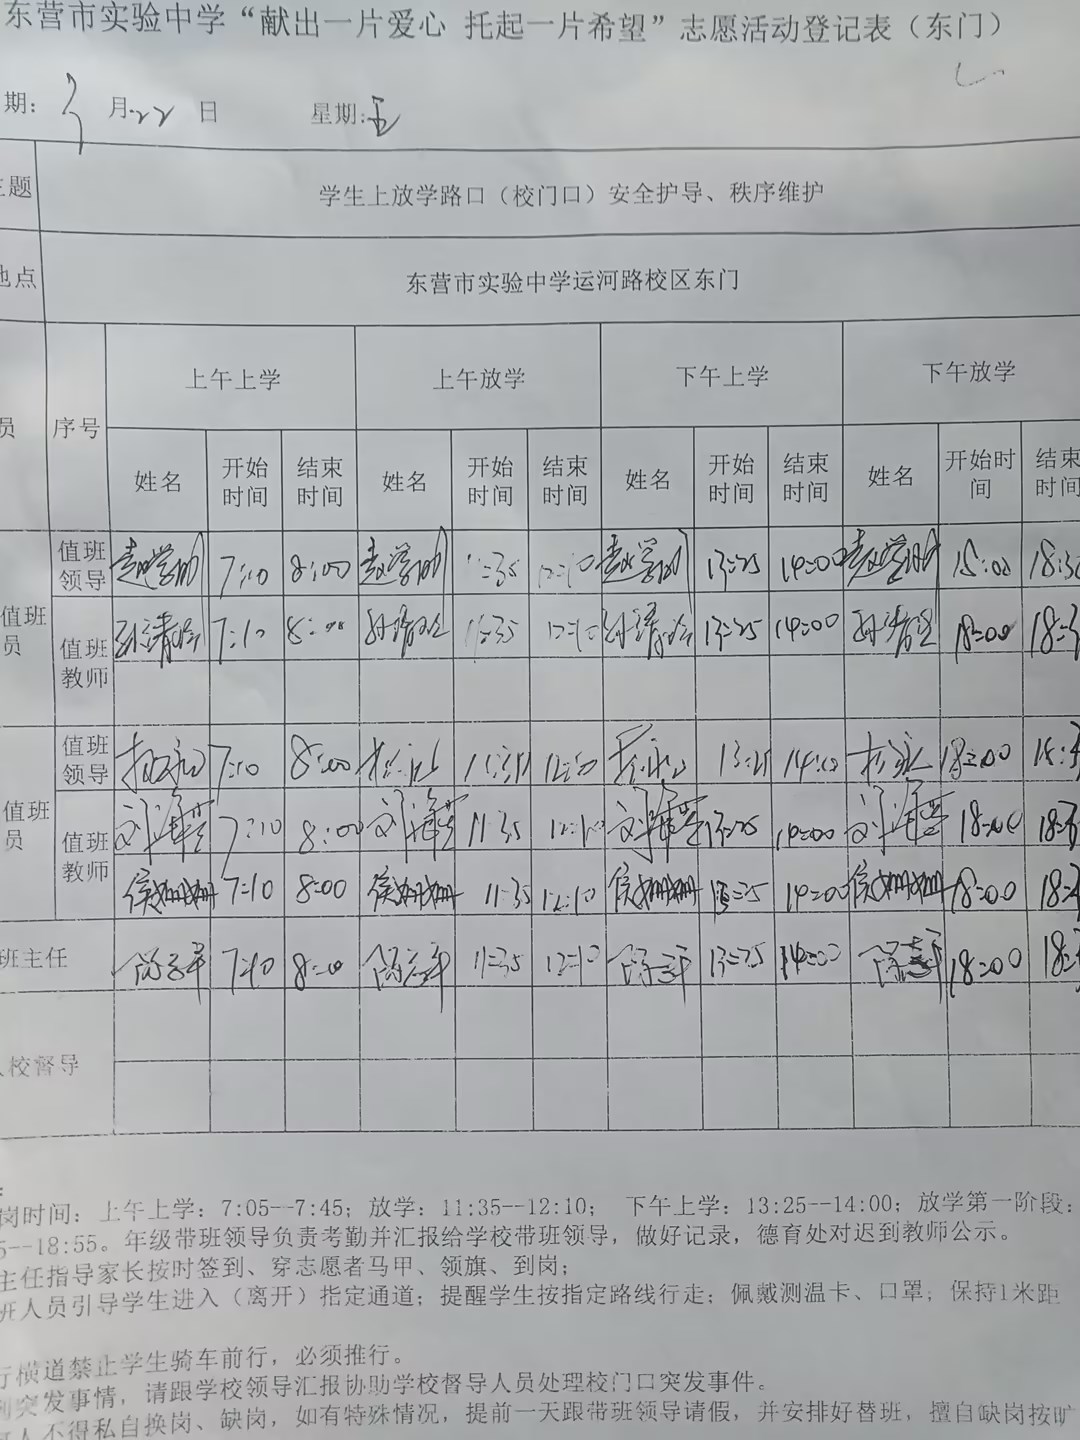 东营市实验中学“献出一片爱心 托起一片希望”志愿活动登记表（东门）
期： 月 22 日 星期：五
主题 学生上放学路口（校门口）安全护导、秩序维护
地点 东营市实验中学运河路校区东门
员 序号 上午上学 上午放学 下午上学 下午放学
姓名 开始时间 结束时间 姓名 开始时间 结束时间 姓名 开始时间 结束时间 姓名 开始时间 结束时间
值班员 值班领导 7:10 8:00 11:35 12:10 13:25 14:00 18:00 18:3
值班教师 孙清 7:10 8:00 孙清 11:35 12:10 孙清 13:25 14:00 孙清 18:00 18:3
值班员 值班领导 7:10 8:00 11:35 12:10 13:25 14:00 18:00 18:3
值班教师 刘 7:10 8:00 刘 11:35 12:10 刘 13:25 14:00 刘 18:00 18:3
侯姗姗 7:10 8:00 侯姗姗 11:35 12:10 侯姗姗 13:25 14:00 侯姗姗 18:00 18:
班主任 7:10 8:00 11:35 12:10 13:25 14:00 18:00 18:
校督导
岗时间：上午上学：7:05--7:45；放学：11:35--12:10； 下午上学：13:25--14:00；放学第一阶段：
5--18:55。年级带班领导负责考勤并汇报给学校带班领导，做好记录，德育处对迟到教师公示。
主任指导家长按时签到、穿志愿者马甲、领旗、到岗；
班人员引导学生进入（离开）指定通道；提醒学生按指定路线行走；佩戴测温卡、口罩；保持1米距
行横道禁止学生骑车前行，必须推行。
突发事情，请跟学校领导汇报协助学校督导人员处理校门口突发事件。
人不得私自换岗、缺岗，如有特殊情况，提前一天跟带班领导请假，并安排好替班，擅自缺岗按旷